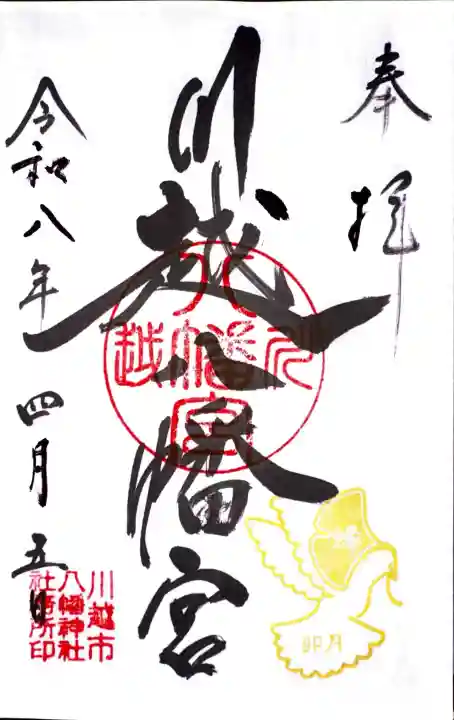 奉拝
川越八幡宮
令和八年 四月 五日
川越
八幡宮
川越市
八幡神社
社務所印
卯月